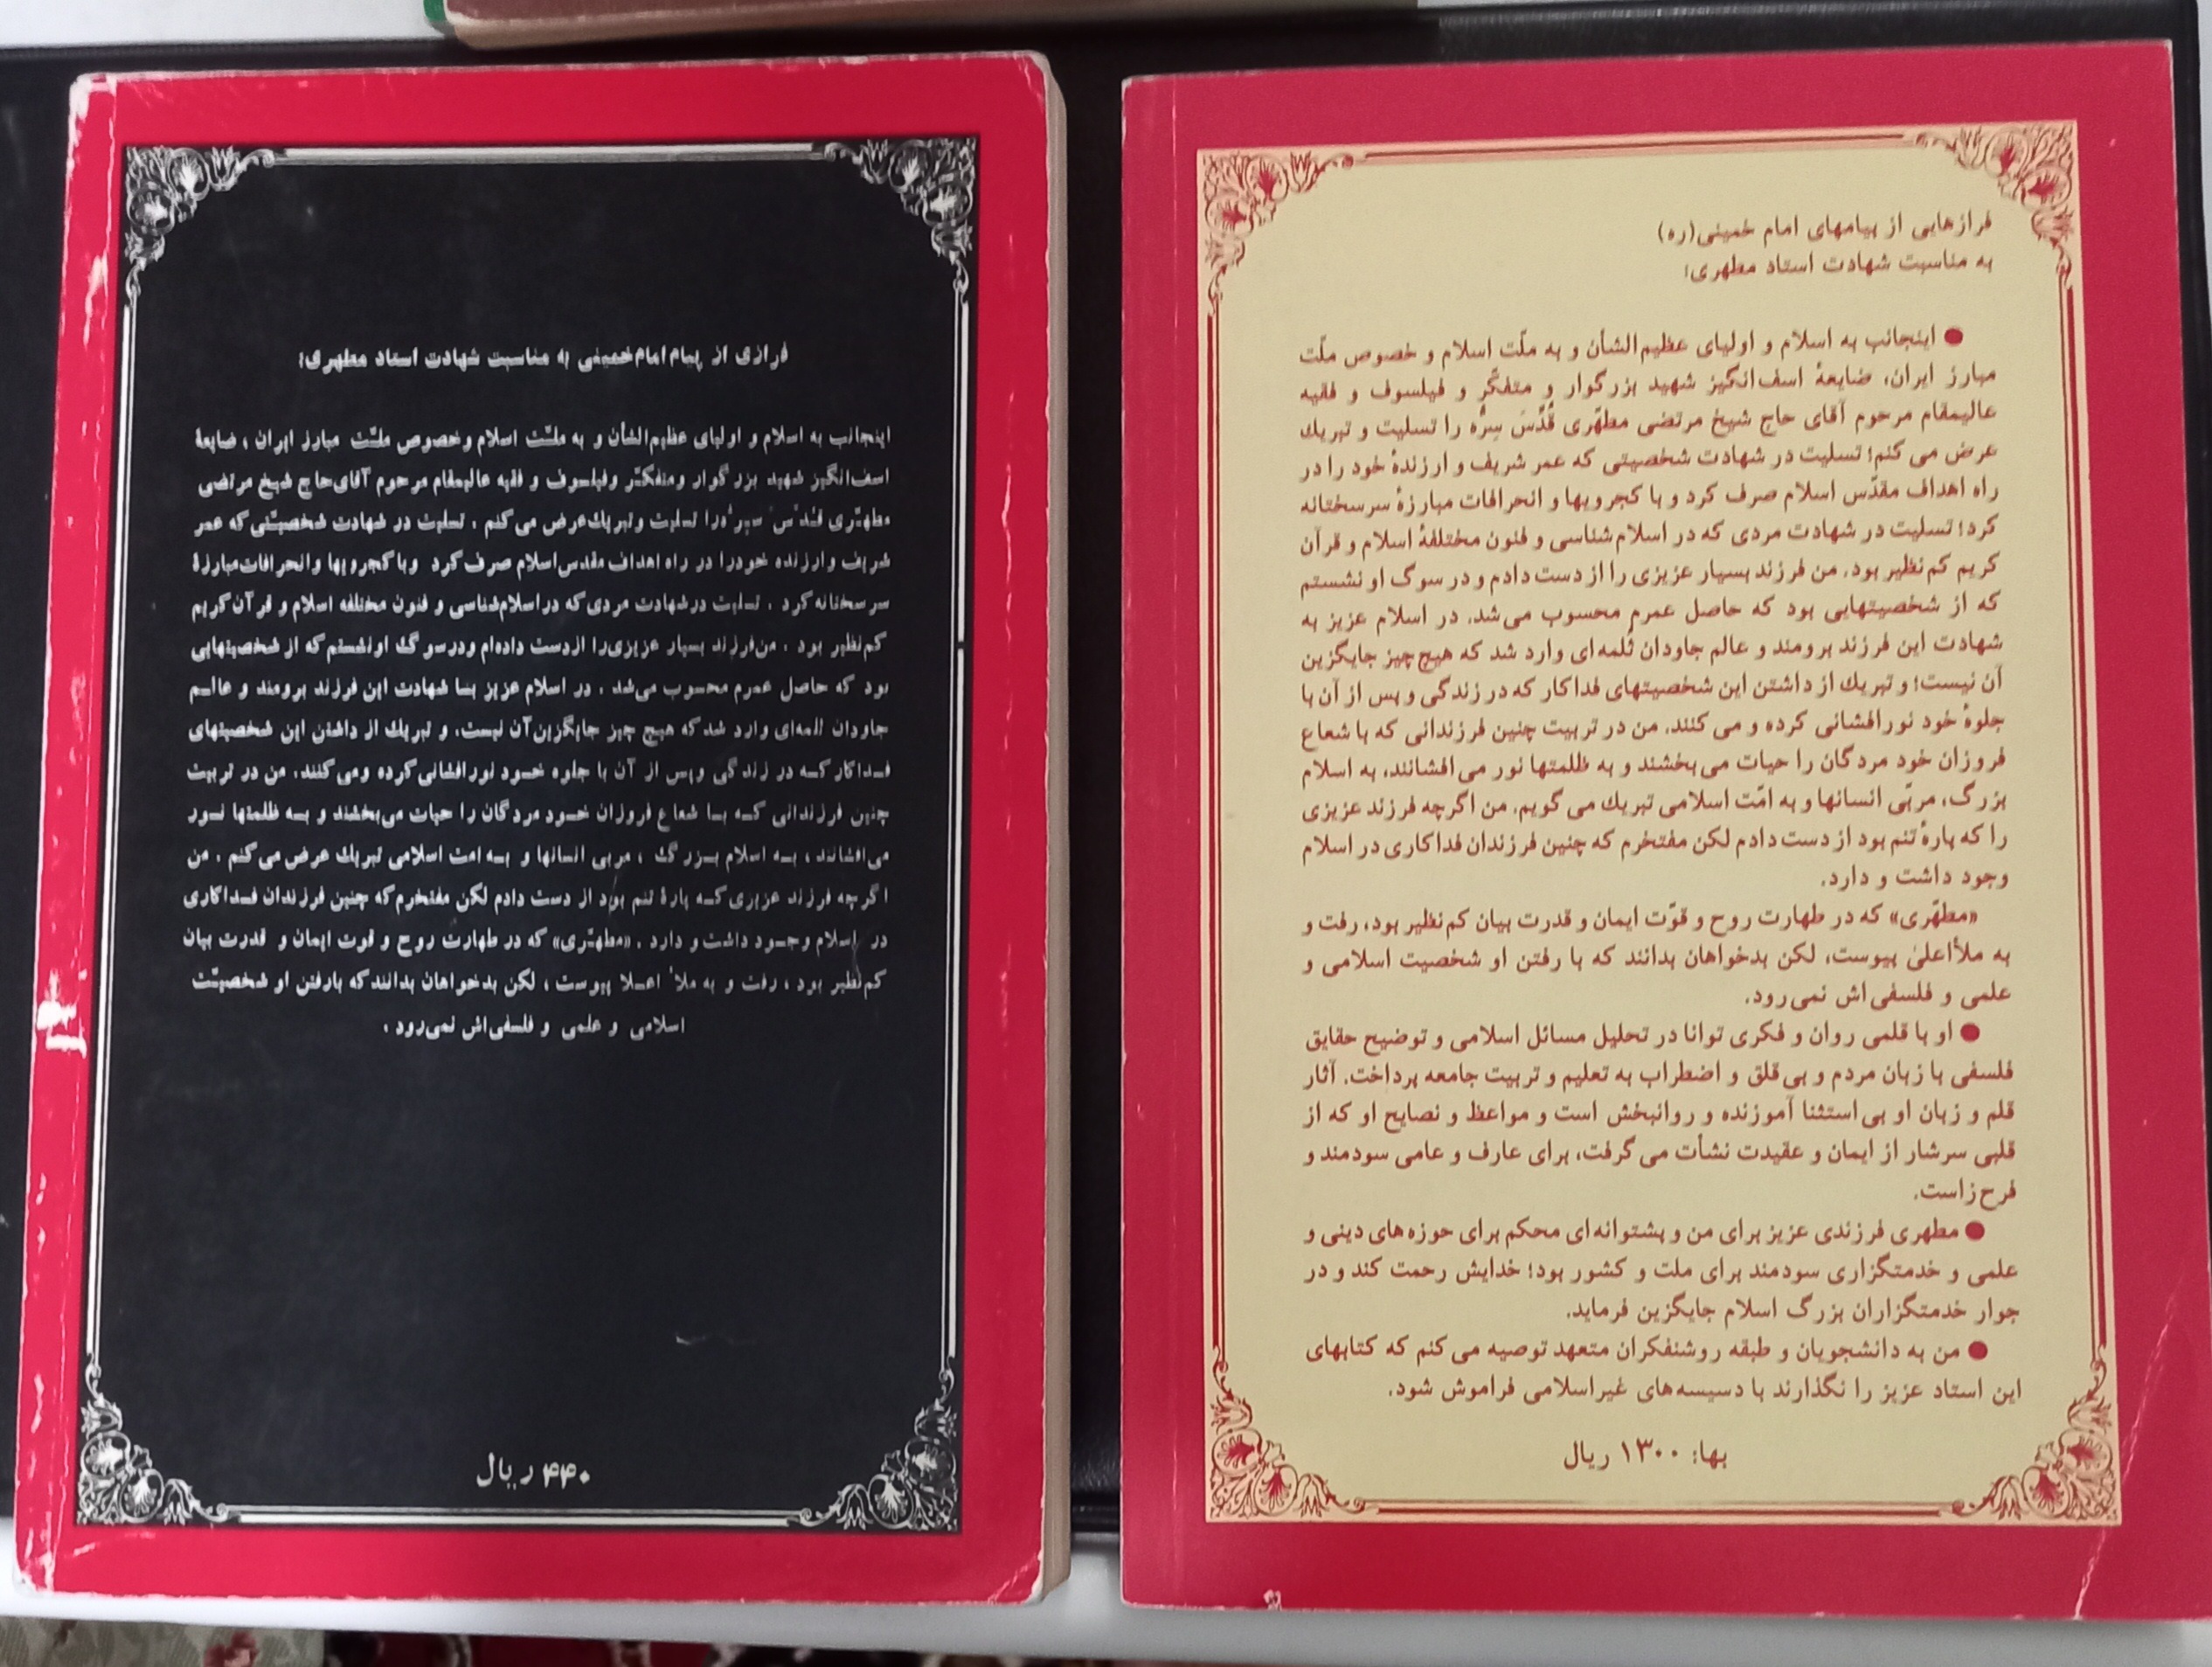 فرازی از پیام امام خمینی به مناسبت شهادت استاد مطهری:
اینجانب به اسلام و اولیای عظیم‌الشأن و به ملّت اسلام و خصوص ملّت مبارز ایران ، ضایعهٔ
اسف‌انگیز شهید بزرگوار و متفکّر و فیلسوف و فقیه عالیمقام مرحوم آقای حاج شیخ مرتضی
مطهّری قدّس سرّه را تسلیت و تبریك عرض می‌کنم . تسلیت در شهادت شخصیّتی که عمر
شریف و ارزنده خود را در راه اهداف مقدس اسلام صرف کرد و با کجرویها و انحرافات مبارزهٔ
سرسختانه کرد . تسلیت در شهادت مردی که در اسلام‌شناسی و فنون مختلفه اسلام و قرآن کریم
کم‌نظیر بود . من فرزند بسیار عزیزی را از دست داده‌ام و در سوگ او نشستم که از شخصیتهایی
بود که حاصل عمرم محسوب می‌شد . در اسلام عزیز بـا شهادت این فرزند برومند و عالـم
جاودان ثلمه‌ای وارد شد که هیچ چیز جایگزین آن نیست، و تبریك از داشتن این شخصیتهای
فـداکار کـه در زندگی و پس از آن با جلوه خـود نورافشانی کرده و می‌کنند. من در تربیت
چنین فرزندانی کـه بـا شعاع فروزان خـود مردگان را حیات می‌بخشند و بـه ظلمتها نـور
می‌افشانند ، بـه اسلام بـزرگ ، مربی انسانها و بـه امت اسلامی تبریك عرض می‌کنم . من
اگرچه فرزند عزیزی کـه پارهٔ تنم بود از دست دادم لکن مفتخرم که چنین فرزندان فـداکاری
در اسلام وجـود داشت و دارد . «مطهّری» که در طهارت روح و قوت ایمان و قدرت بیان
کم‌نظیر بود ، رفت و به ملأ اعـلا پیوست ، لکن بدخواهان بدانند که با رفتن او شخصیّت
اسلامی و علمی و فلسفی‌اش نمی‌رود .
۴۴۰ ریال
فرازهایی از پیامهای امام خمینی(ره)
به مناسبت شهادت استاد مطهری:
● اینجانب به اسلام و اولیای عظیم‌الشأن و به ملّت اسلام و خصوص ملّت
مبارز ایران، ضایعهٔ اسف‌انگیز شهید بزرگوار و متفکّر و فیلسوف و فقیه
عالیمقام مرحوم آقای حاج شیخ مرتضی مطهّری قُدِّسَ سِرُّه را تسلیت و تبریك
عرض می کنم؛ تسلیت در شهادت شخصیتی که عمر شریف و ارزندهٔ خود را در
راه اهداف مقدّس اسلام صرف کرد و با کجرویها و انحرافات مبارزهٔ سرسختانه
کرد؛ تسلیت در شهادت مردی که در اسلام شناسی و فنون مختلفهٔ اسلام و قرآن
کریم کم نظیر بود. من فرزند بسیار عزیزی را از دست دادم و در سوگ او نشستم
که از شخصیتهایی بود که حاصل عمرم محسوب می شد. در اسلام عزیز به
شهادت این فرزند برومند و عالم جاودان ثُلمه ای وارد شد که هیچ چیز جایگزین
آن نیست؛ و تبریك از داشتن این شخصیتهای فداکار که در زندگی و پس از آن با
جلوهٔ خود نورافشانی کرده و می کنند. من در تربیت چنین فرزندانی که با شعاع
فروزان خود مردگان را حیات می بخشند و به ظلمتها نور می افشانند، به اسلام
بزرگ، مربّی انسانها و به امّت اسلامی تبریك می گویم. من اگرچه فرزند عزیزی
را که پارهٔ تنم بود از دست دادم لکن مفتخرم که چنین فرزندان فداکاری در اسلام
وجود داشت و دارد.
«مطهّری» که در طهارت روح و قوّت ایمان و قدرت بیان کم نظیر بود، رفت و
به ملأاعلیٰ پیوست، لکن بدخواهان بدانند که با رفتن او شخصیت اسلامی و
علمی و فلسفی اش نمی رود.
● او با قلمی روان و فکری توانا در تحلیل مسائل اسلامی و توضیح حقایق
فلسفی با زبان مردم و بی قلق و اضطراب به تعلیم و تربیت جامعه پرداخت. آثار
قلم و زبان او بی استثنا آموزنده و روانبخش است و مواعظ و نصایح او که از
قلبی سرشار از ایمان و عقیدت نشأت می گرفت، برای عارف و عامی سودمند و
فرح زاست.
● مطهری فرزندی عزیز برای من و پشتوانه ای محکم برای حوزه های دینی و
علمی و خدمتگزاری سودمند برای ملت و کشور بود؛ خدایش رحمت کند و در
جوار خدمتگزاران بزرگ اسلام جایگزین فرماید.
● من به دانشجویان و طبقه روشنفکران متعهد توصیه می کنم که کتابهای
این استاد عزیز را نگذارند با دسیسه های غیراسلامی فراموش شود.
بها: ۱۳۰۰ ریال